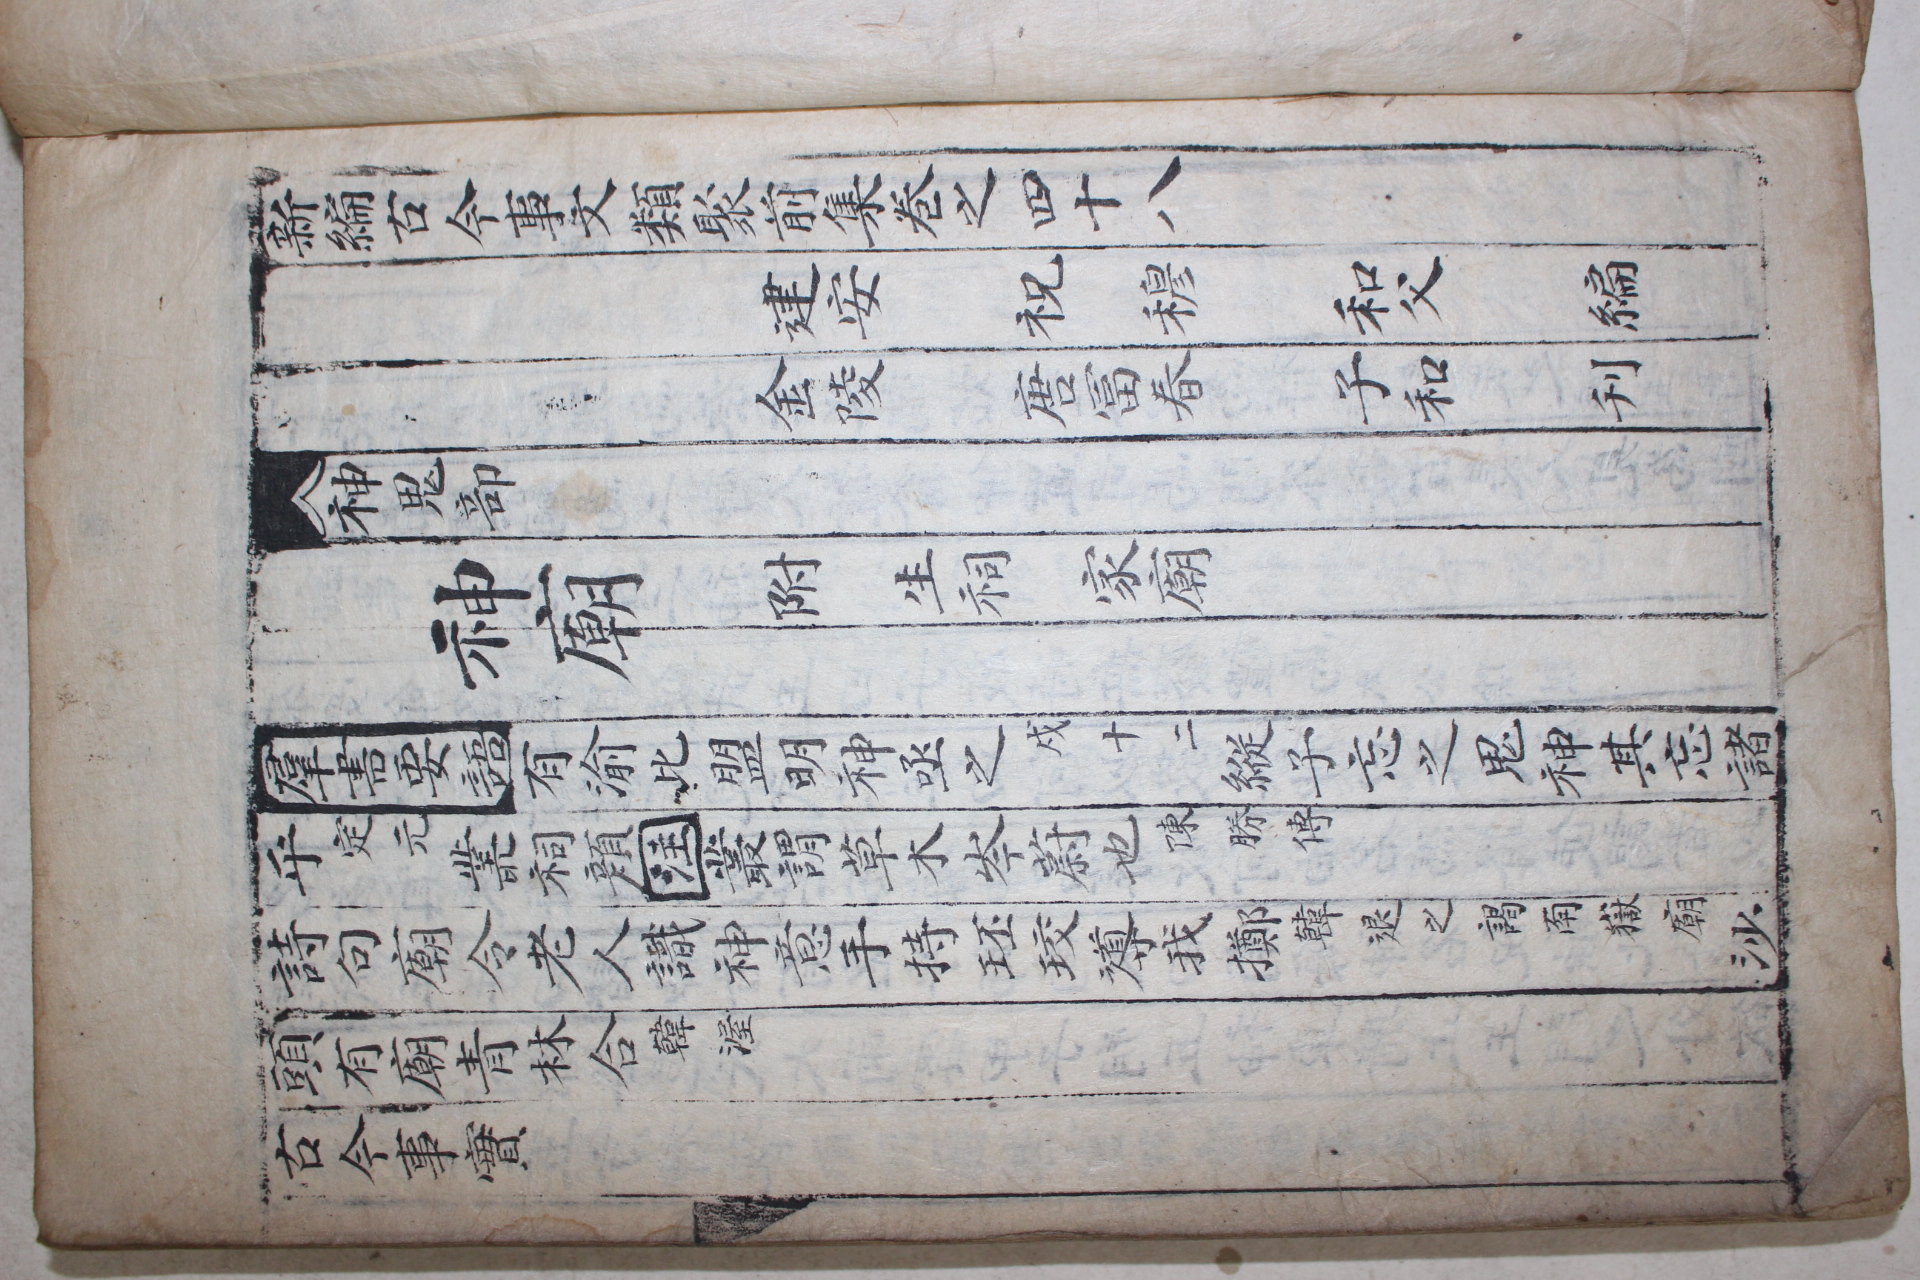 新編古今事文類聚前集卷之四十八
建安 祝穆 和父 編
金陵 唐冨春 子和 刋
神鬼部
神廟 附 生祠 家廟
羣書要語 有渝此盟明神亟之 戍十二 縱子忘之鬼神其忘諸
乎 定元 叢祠顔注叢謂草木岑蔚也 陳勝傳
詩句 廟令老人識神意手持珓導我擲 韓退之謁南嶽廟 沙
頭有廟青林合 韓渥
古今事實